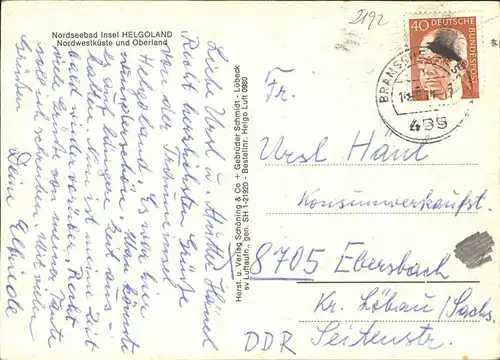 Nordseebad Insel HELGOLAND
Nordwestküste und Oberland
2192
40 DEUTSCHE
BUNDESPOST
BRAMSCHE
499
Liebe Ursl u. Mutter Hänel
Recht herzlichste Grüße
von der Trauminsel
Helgoland. Es war hier
wunderschön. Man könnte
es auf längere Zeit aus-
halten. Nun ist meine Zeit
bald wieder vorüber. Recht
viele Grüße von meiner Tante
soll ich schreiben. Mit vielen
Grüßen
Deine Elfriede
Herst. u. Verlag Schöning & Co + Gebrüder Schmidt - Lübeck
sv Luftaufn., gen. SH 1-21920 - Bestellnr. Helgo Luft 0980
Fr.
Ursl Hänl
Konsumverkaufst.
8705 Ebersbach
Kr. Löbau/Sachs.
DDR Seitenstr.